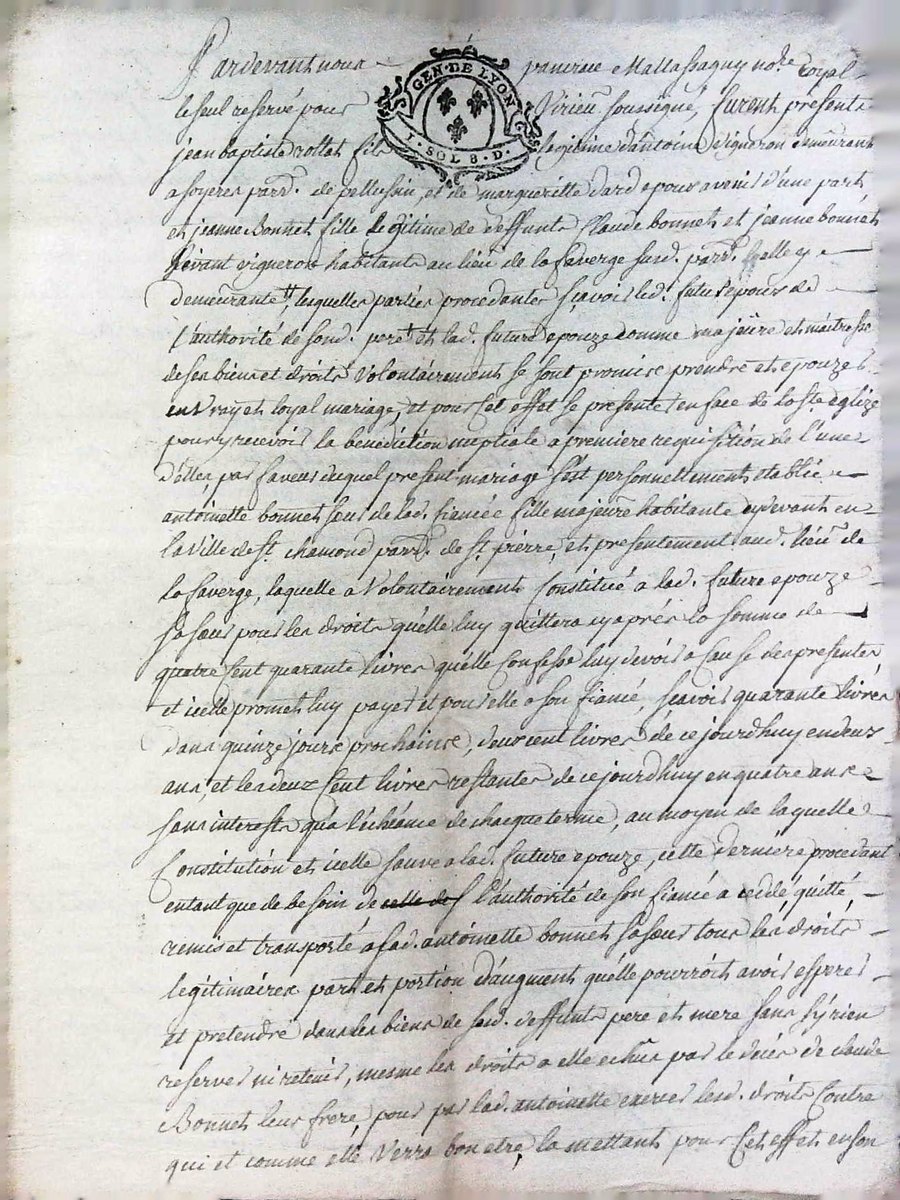 Pardevant nous pancrace Mallassagny no.re royal
le seul reservé pour Virieu soussigné, furent présents
GEN. DE LYON
1. SOL 8. D.
jean baptiste rollat fils legitime d'antoine vigneron demeurant
a soyeres parr. de pellussin, et de margueritte dard epoux avenir d'une part
et jeanne Bonnet fille legitime de deffunts Claude bonnet et jeanne bonnet
vivant vigneron habitants au lieu de la faverge susd. parr. elle y
demeurante, lesquelles parties procedantes scavoir led. futur époux de
l'authorité de sond. pere et lad. future epouze comme majeure et maitresse
de ses biens et droits volontairement se sont promis prendre et epouzer
en vray et loyal mariage, et pour cet effet se presenter en face de la ste eglize
pour y recevoir la bénédiction nuptiale a premiere requisition de l'une
d'elles, par faveur duquel present mariage s'est personnellement etablie
antoinette bonnet soeur de lad. fiancée fille majeure habitante cydevant en
la ville de st. chamond parr. de st. pierre, et presentement aud. lieu de
la faverge, laquelle a volontairement constitué a lad. future epouze
sa soeur pour les droits quélle luy quittera cyaprés la somme de
quatre cent quarante livres quélle confesse luy devoir a cause des presentes
et icelle promet luy payer et pour elle a son fiancé, scavoir quarante livres
dans quinze jours prochains, deux cent livres de ce jourdhuy en deux
ans, et les deux cent livres restantes de ce jourdhuy en quatre ans
sans interests qu'a l'échéance de chacque terme, au moyen de laquelle
Constitution et icelle sauve a lad. future epouze, cette derniere procedant
entant que de besoin de celle de l'authorité de son fiancé a cédé, quitté,
remis et transporté a sad. antoinette bonnet sa soeur tous les droits
legitimaires part et portion d'augment quélle pourroit avoir esperer
et pretendre dans les biens de sesd. deffunts pere et mere sans s'y rien
reserver ni retenir, mesme les droits a elle echus par le décès de claude
Bonnet leur frere, pour par lad. antoinette exercer lesd. droits contre
qui et comme elle verra bon etre, la mettant pour cet effet en son